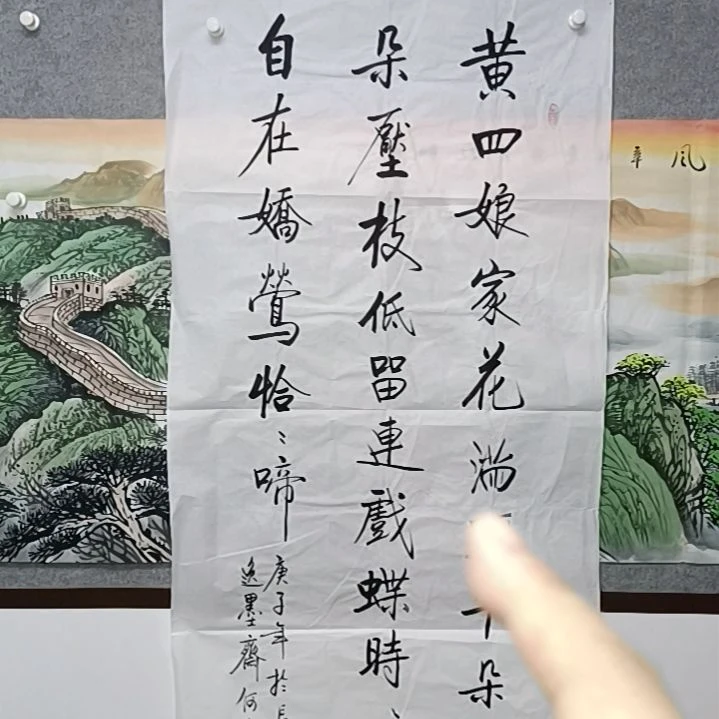 黄四娘家花满千朵
朵壓枝低留連戲蝶時〻
自在嬌鶯恰〻啼
庚子年於
逸墨齋何
風